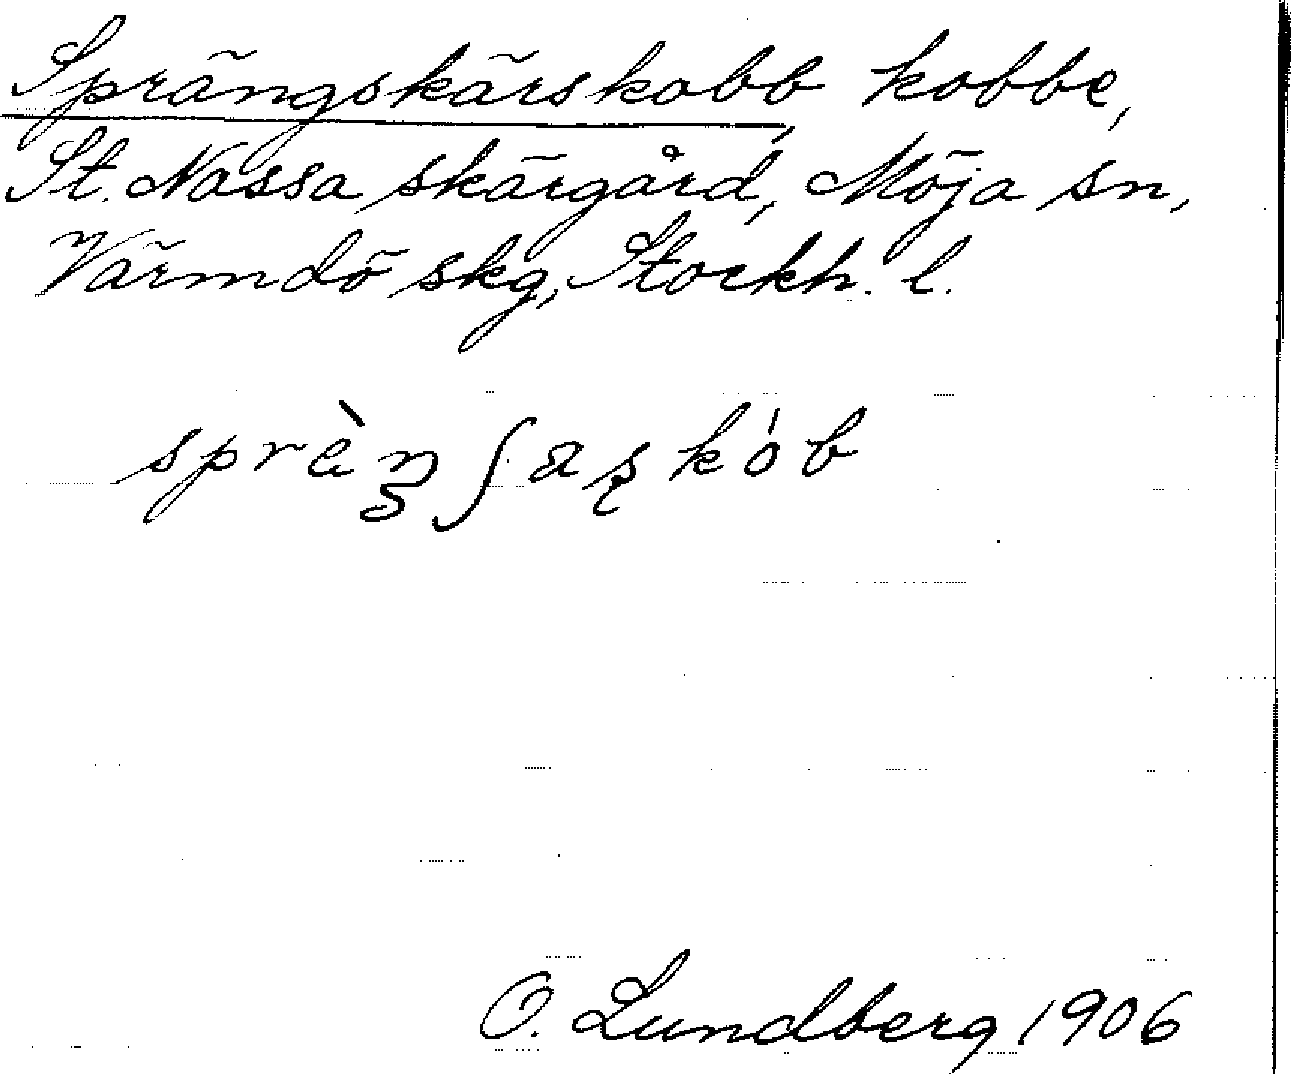 Sprängskärskobb, kobbe,
St. Nassa skärgård, Möja sn,
Värmdö skg, Stockh. l.
sprèŋʃaʂkób
O. Lundberg 1906